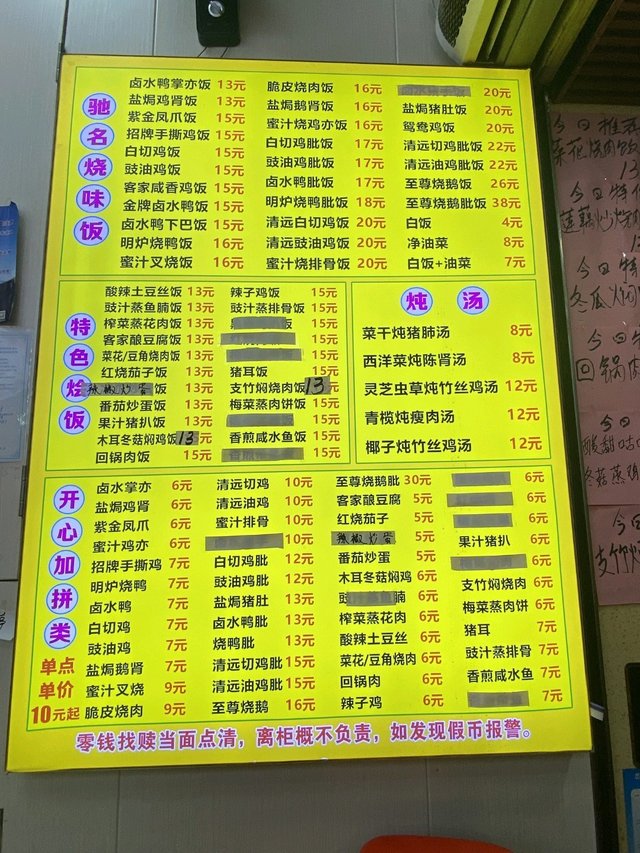 驰名烧味饭
卤水鸭掌亦饭 13元
盐焗鸡肾饭 13元
紫金凤爪饭 15元
招牌手撕鸡饭 15元
白切鸡饭 15元
豉油鸡饭 15元
客家咸香鸡饭 15元
金牌卤水鸭饭 15元
卤水鸭下巴饭 15元
明炉烧鸭饭 16元
蜜汁叉烧饭 16元
脆皮烧肉饭 16元
盐焗鹅肾饭 16元
蜜汁烧鸡亦饭 16元
白切鸡肶饭 17元
豉油鸡肶饭 17元
卤水鸭肶饭 17元
明炉烧鸭肶饭 18元
清远白切鸡饭 20元
清远豉油鸡饭 20元
蜜汁烧排骨饭 20元
20元
盐焗猪肚饭 20元
鸳鸯鸡饭 20元
清远切鸡肶饭 22元
清远油鸡肶饭 22元
至尊烧鹅饭 26元
至尊烧鹅肶饭 38元
白饭 4元
净油菜 8元
白饭+油菜 7元
特色烩饭
酸辣土豆丝饭 13元
豉汁蒸鱼腩饭 13元
榨菜蒸花肉饭 13元
客家酿豆腐饭 13元
菜花/豆角烧肉饭 13元
红烧茄子饭 13元
辣椒炒蛋饭 13元
番茄炒蛋饭 13元
果汁猪扒饭 13元
木耳冬菇焖鸡饭 13元
回锅肉饭 15元
辣子鸡饭 15元
豉汁蒸排骨饭 15元
饭 15元
15元
15元
猪耳饭 15元
支竹焖烧肉饭 13元
梅菜蒸肉饼饭 15元
15元
香煎咸水鱼饭 15元
15元
炖汤
菜干炖猪肺汤 8元
西洋菜炖陈肾汤 8元
灵芝虫草炖竹丝鸡汤 12元
青榄炖瘦肉汤 12元
椰子炖竹丝鸡汤 12元
开心加拼类
单点
单价
10元起
卤水掌亦 6元
盐焗鸡肾 6元
紫金凤爪 6元
蜜汁鸡亦 6元
招牌手撕鸡 7元
明炉烧鸭 7元
卤水鸭 7元
白切鸡 7元
豉油鸡 7元
盐焗鹅肾 7元
蜜汁叉烧 9元
脆皮烧肉 9元
清远切鸡 10元
清远油鸡 10元
蜜汁排骨 10元
10元
白切鸡肶 12元
豉油鸡肶 12元
盐焗猪肚 13元
卤水鸭肶 13元
烧鸭肶 13元
清远切鸡肶 15元
清远油鸡肶 15元
至尊烧鹅 16元
至尊烧鹅肶 30元
客家酿豆腐 5元
红烧茄子 5元
辣椒炒蛋 5元
番茄炒蛋 5元
木耳冬菇焖鸡 6元
豉 腩 6元
榨菜蒸花肉 6元
酸辣土豆丝 6元
菜花/豆角烧肉 6元
回锅肉 6元
辣子鸡 6元
6元
6元
6元
果汁猪扒 6元
6元
支竹焖烧肉 6元
梅菜蒸肉饼 6元
猪耳 7元
豉汁蒸排骨 7元
香煎咸水鱼 7元
7元
零钱找赎当面点清，离柜概不负责，如发现假币报警。
今日推
菜花烧肉饭
13
今日特
莲藕炒
今日特
冬瓜
今日
回锅肉
今日
酸甜咕
冬菇蒸鸡
今日
支竹